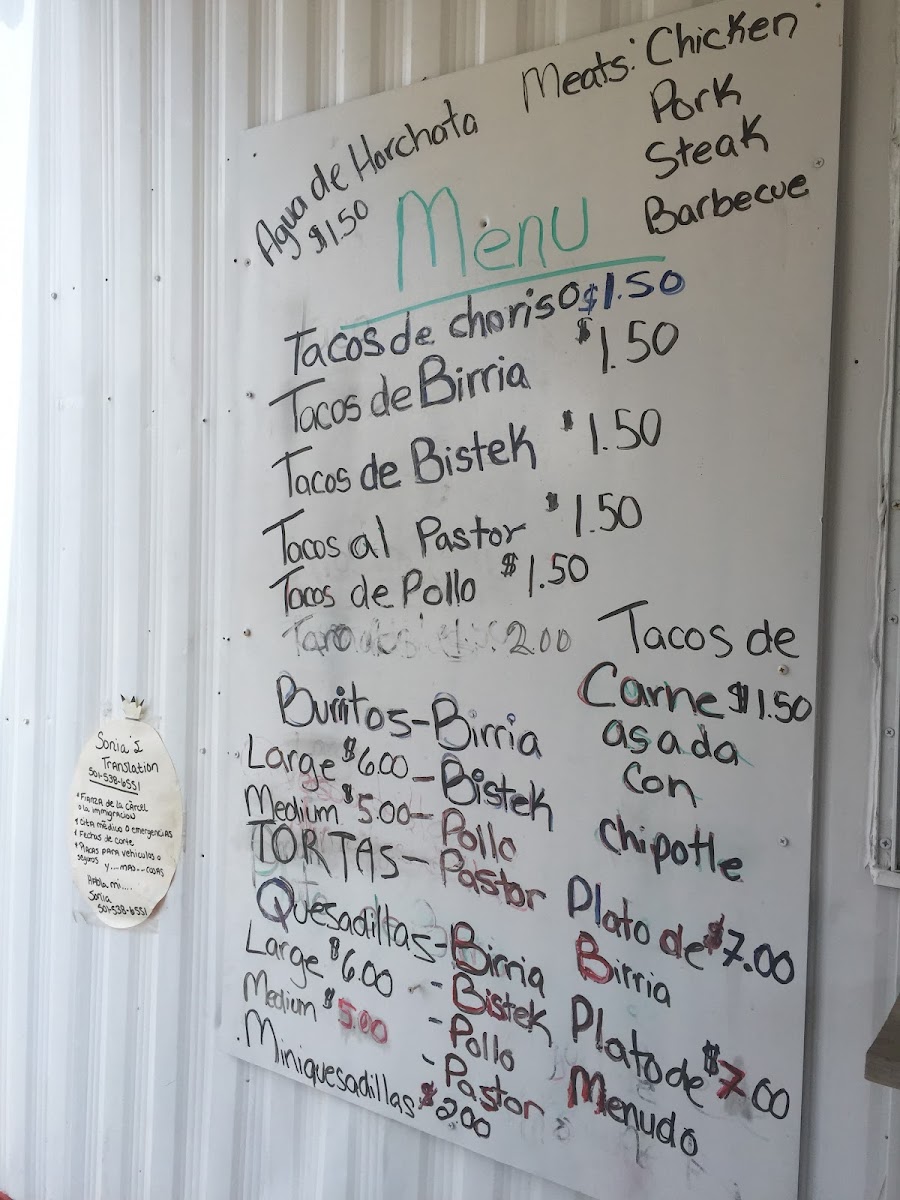 Agua de Horchata
$1.50
Meats: Chicken
Pork
Steak
Barbecue
Menu
Tacos de choriso $1.50
Tacos de Birria $1.50
Tacos de Bistek $1.50
Tacos al Pastor $1.50
Tacos de Pollo $1.50
2.00
Tacos de
Carne $1.50
asada
con
chipotle
Burritos-Birria
Large $6.00-Bistek
Medium $5.00-Pollo
TORTAS-Pastor
Quesadillas-Birria
Large $6.00 -Bistek
Medium $5.00 -Pollo
-Pastor
Miniquesadillas $2.00
Plato de $7.00
Birria
Plato de $7.00
Menudo
Sonia's
Translation
501-538-6551
*Fianza de la cárcel
o la immigracion
*cita médico o emergencias
*Fechas de corte
*Placas para vehiculos o
seguros y....mas--cosas
Habla mi....
Sonia
501-538-6551